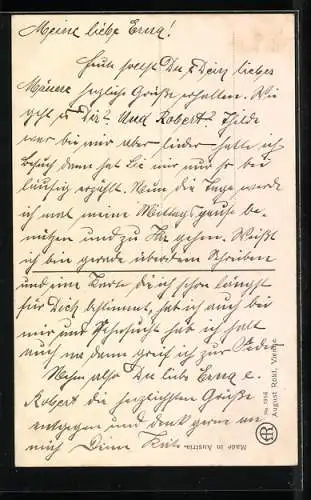 Meine liebe Erna!
Heute sollst Du & Dein liebes
Männe herzliche Grüße erhalten. Wie
geht es Dir? Und Robert? Thilde
war bei mir aber leider hatte ich
Besuch dann hat Sie mir nur so bei
läufig erzählt. Nun die Tage werde
ich mal meine Mittagspause be-
nützen und zu Ihr gehen. Weißt
ich bin gerade über dem Schreiben
und eine Karte die ich schon längst
für Dich bestimmt, hab ich auch bei
mir und Sehnsucht hab ich halt
auch na dann greif ich zur Feder
Nehm also Du liebe Erna &
Robert die herzlichsten Grüße
entgegen und denk gerne an
mich Deine
Made in Austria.
August Rökl, Vienne